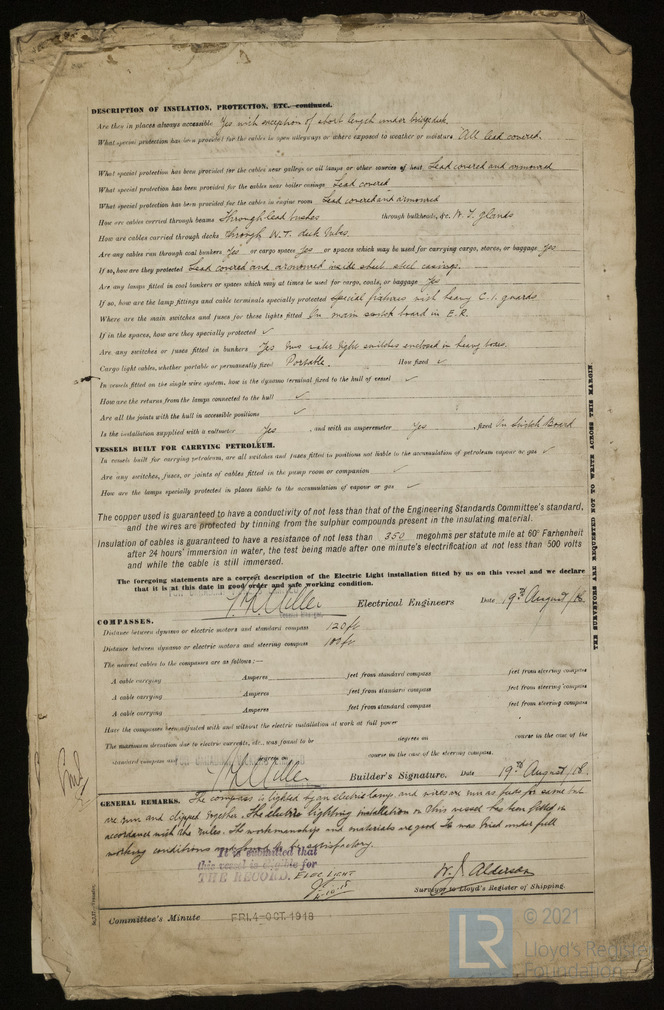 DESCRIPTION OF INSULATION, PROTECTION, ETC. continued.
Are they in places always accessible Yes with exception of short length under bridge deck.
What special protection has been provided for the cables in open alleyways or where exposed to weather or moisture All lead covered.
What special protection has been provided for the cables near galleys or oil lamps or other sources of heat Lead covered and armoured
What special protection has been provided for the cables near boiler casings Lead covered
What special protection has been provided for the cables in engine room Lead covered and armoured
How are cables carried through beams Through lead bushes through bulkheads, &c. W. T. glands
How are cables carried through decks through W.T. deck tubes.
Are any cables run through coal bunkers Yes or cargo spaces Yes or spaces which may be used for carrying cargo, stores, or baggage Yes
If so, how are they protected Lead covered and armoured inside sheet steel casings.
Are any lamps fitted in coal bunkers or spaces which may at times be used for cargo, coals, or baggage Yes
If so, how are the lamp fittings and cable terminals specially protected Special fixtures with heavy C.I. guards
Where are the main switches and fuses for these lights fitted On main switch board in E.R.
If in the spaces, how are they specially protected ✓
Are any switches or fuses fitted in bunkers Yes two water tight switches enclosed in heavy boxes.
Cargo light cables, whether portable or permanently fixed Portable. How fixed ✓
In vessels fitted on the single wire system, how is the dynamo terminal fixed to the hull of vessel ✓
How are the returns from the lamps connected to the hull ✓
Are all the joints with the hull in accessible positions ✓
Is the installation supplied with a voltmeter Yes , and with an amperemeter Yes , fixed On Switch Board
VESSELS BUILT FOR CARRYING PETROLEUM.
In vessels built for carrying petroleum, are all switches and fuses fitted in positions not liable to the accumulation of petroleum vapour or gas ✓
Are any switches, fuses, or joints of cables fitted in the pump room or companion ✓
How are the lamps specially protected in places liable to the accumulation of vapour or gas ✓
The copper used is guaranteed to have a conductivity of not less than that of the Engineering Standards Committee's standard,
and the wires are protected by tinning from the sulphur compounds present in the insulating material.
Insulation of cables is guaranteed to have a resistance of not less than 350 megohms per statute mile at 60° Farhenheit
after 24 hours' immersion in water, the test being made after one minute's electrification at not less than 500 volts
and while the cable is still immersed.
The foregoing statements are a correct description of the Electric Light installation fitted by us on this vessel and we declare
that it is at this date in good order and safe working condition.
Electrical Engineers Date 19th August/18
COMPASSES.
Distance between dynamo or electric motors and standard compass 120 ft
Distance between dynamo or electric motors and steering compass
The nearest cables to the compasses are as follows:—
A cable carrying Amperes feet from standard compass feet from steering compass
A cable carrying Amperes feet from standard compass feet from steering compass
A cable carrying Amperes feet from standard compass feet from steering compass
Have the compasses been adjusted with and without the electric installation at work at full power
The maximum deviation due to electric currents, etc., was found to be degrees on course in the case of the
standard compass and degrees on course in the case of the steering compass.
Builder's Signature. Date 19th August/18.
GENERAL REMARKS. The compass is lighted by an electric lamp and wires are run as for same but
are run and clipped together. The electric lighting installation on this vessel has been fitted in
accordance with the rules. The workmanship and materials are good. It was tried under full
working conditions and found to be satisfactory.
It is submitted that
this vessel is eligible for
THE RECORD. ELEC. LIGHT
4-10-18
W. J. Alderson
Surveyor to Lloyd's Register of Shipping.
Committee's Minute FRI. 4-OCT. 1918
THE SURVEYORS ARE REQUESTED NOT TO WRITE ACROSS THIS MARGIN
LR
© 2021
Lloyd's Register
Foundation